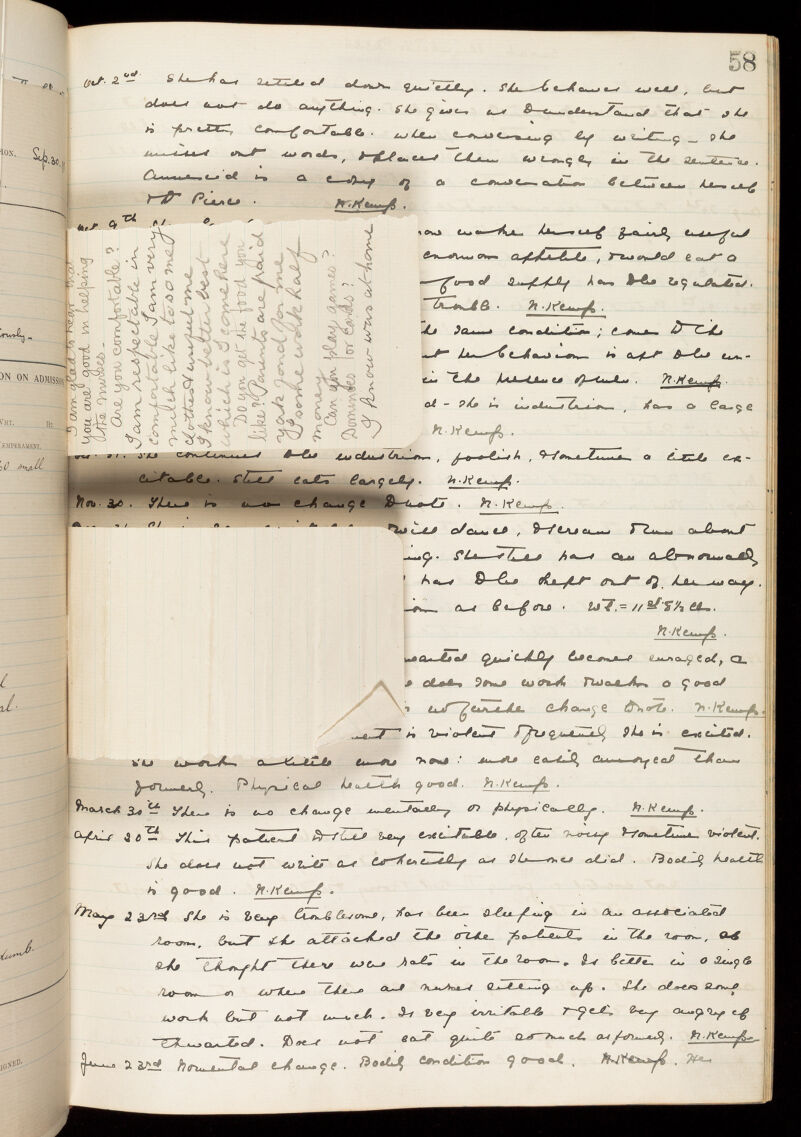 58
Oct. 2nd She has settled down quietly. She behaves well, but
does not do anything. She gives us to understand that she
is pretty comfortable. When conversing by writing - she
misses out words, & places them wrongly in the sentence.
Annexed is a copy of a conversation between herself
& Dr Pierce. N. Kemp.
Oct. 9th
now makes herself fairly useful
enormous appetite, & would eat a
food supply has to be regulated.
trouble. N. Kemp.
the same condition; comes to the
but her behaviour is apt to be un-
in the presence of men. N. Kemp.
d - she is industrious, has a large
N. Kemp.
I am glad to hear that
you are good in helping
the nurses.
Are you comfortable?
I am respectable in
comfortable I am very
much like to some
clothes
I know better best
which is I come here
Do you get the food you
like? Parents are paid
for me
I some work half
money
Can you play games?
Dominoes or Cards?
I know was at home
She continues to be industrious, foolish, & sometimes a little ex-
citable. Still eats largely. N. Kemp.
Nov. 30. There is no change to note. N. Kemp.
will dance, & scream & run about
She still has an abnormally
has to be kept out of her way.
as before. Wt. = 11st 8½ lbs.
N. Kemp.
thwarted quickly becomes enraged, a
does some work & walks a good
no further change to note. N. Kemp.
is violent & frequently she is excited.
She works a little more now: more easily annoyed than
formerly. Physical health good. N. Kemp.
March 30th There is no change mentally or physically. N. Kemp.
April 30th This patient is still very excitable, often noisy & sometimes violent.
She does not write as coherently as she once did. Bodily health
is good. N. Kemp.
May 23rd She is very troublesome, has been sleeping in an associated
room, but she attacked the other patients in the room, as
she thought there were rats in the room. Is better in a single
room or where there are nurses sitting up. She does some
work but not much. Is very irritable & gets very angry if
thwarted. Does not eat quite so much as formerly. N. Kemp
June 23rd No mental change. Bodily condition good. N. Kemp.